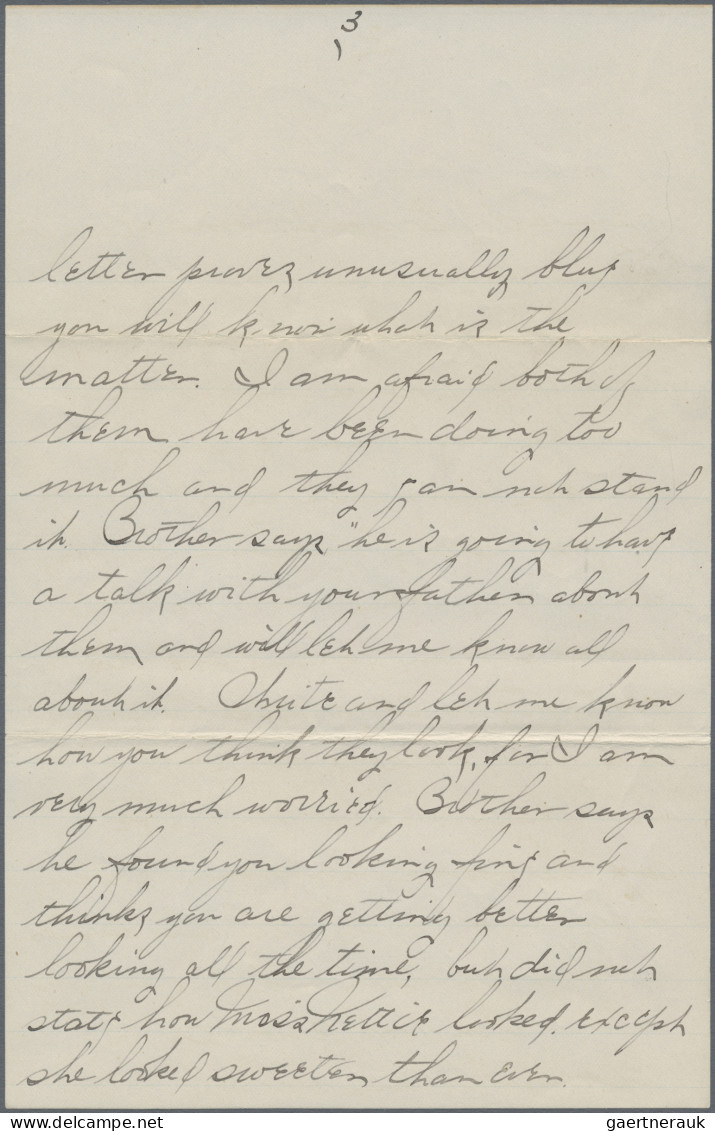 3
letter proves unusually blue
you will know what is the
matter. I am afraid both of
them have been doing too
much and they can not stand
it. Brother says, "he is going to have
a talk with your father about
them and will let me know all
about it. Write and let me know
how you think they look, for I am
very much worried. Brother says
he found you looking fine and
thinks you are getting better
looking all the time, but did not
state how Miss Nettie looked. except
she looked sweeter than ever.
gaertnerauk